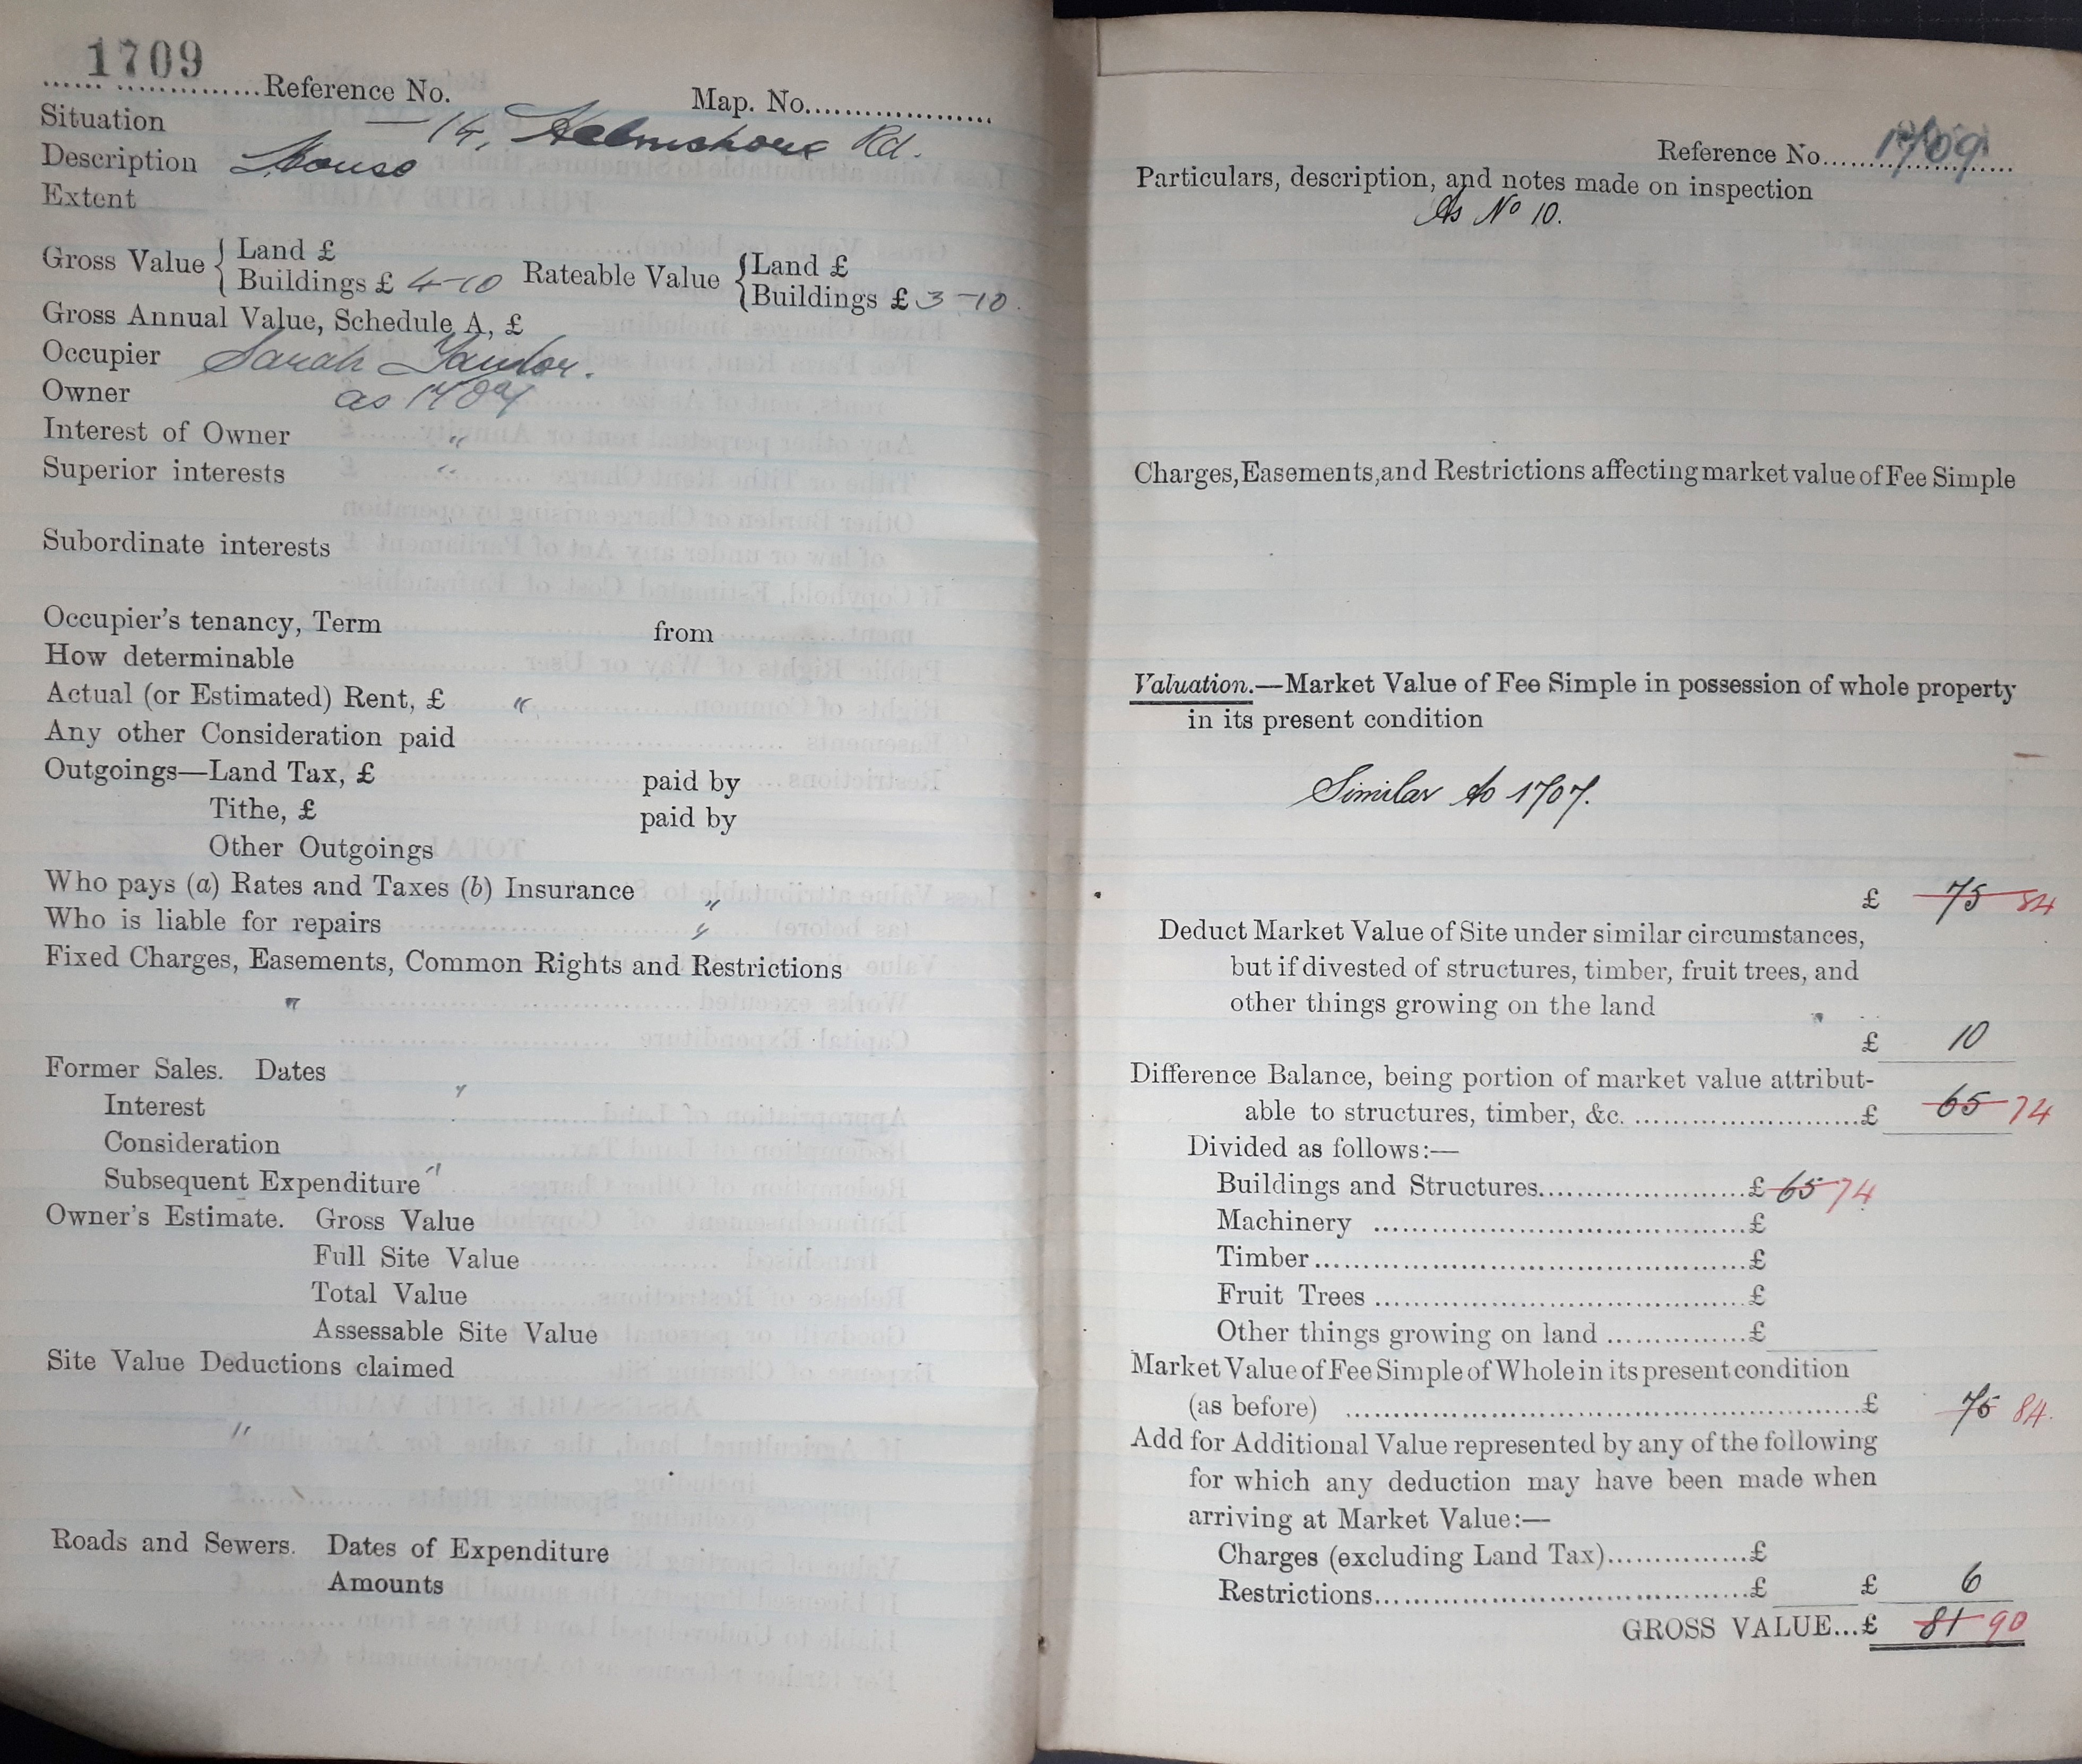 1709
Reference No. Map. No.
Situation — 14, Helmshore Rd.
Description House
Extent
Gross Value { Land £
Buildings £ 4-10 Rateable Value { Land £
Buildings £ 3-10.
Gross Annual Value, Schedule A, £
Occupier Sarah
Owner as 1707
Interest of Owner "
Superior interests "
Subordinate interests
Occupier's tenancy, Term from
How determinable
Actual (or Estimated) Rent, £ "
Any other Consideration paid
Outgoings—Land Tax, £ paid by
Tithe, £ paid by
Other Outgoings
Who pays (a) Rates and Taxes (b) Insurance "
Who is liable for repairs "
Fixed Charges, Easements, Common Rights and Restrictions
"
Former Sales. Dates "
Interest
Consideration
Subsequent Expenditure "
Owner's Estimate. Gross Value
Full Site Value
Total Value
Assessable Site Value
Site Value Deductions claimed
"
Roads and Sewers. Dates of Expenditure
Amounts
Reference No. 1709
Particulars, description, and notes made on inspection
As No 10.
Charges, Easements, and Restrictions affecting market value of Fee Simple
Valuation.—Market Value of Fee Simple in possession of whole property
in its present condition
Similar to 1707.
£ 75 84
Deduct Market Value of Site under similar circumstances,
but if divested of structures, timber, fruit trees, and
other things growing on the land
£ 10
Difference Balance, being portion of market value attribut-
able to structures, timber, &c. £ 65 74
Divided as follows:—
Buildings and Structures £ 65 74
Machinery £
Timber £
Fruit Trees £
Other things growing on land £
Market Value of Fee Simple of Whole in its present condition
(as before) £ 75 84.
Add for Additional Value represented by any of the following
for which any deduction may have been made when
arriving at Market Value:—
Charges (excluding Land Tax) £
Restrictions £ £ 6
GROSS VALUE...£ 81 90